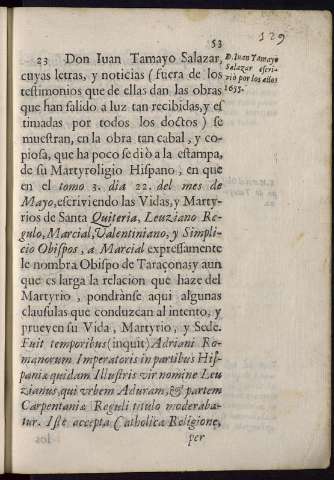 129
53
23 Don Iuan Tamayo Salazar,
cuyas letras, y noticias (fuera de los
testimonios que de ellas dan las obras
que han salido a luz tan recibidas, y es
timadas por todos los doctos) se
muestran, en la obra tan cabal, y co-
piosa, que ha poco se diò a la estampa,
de su Martyroligio Hispano, en que
en el tomo 3. dia 22. del mes de
Mayo, escriviendo las Vidas, y Marty-
rios de Santa Quiteria, Leuziano Re-
gulo, Marcial, Valentiniano, y Simpli-
cio Obispos, a Marcial expressamente
le nombra Obispo de Taraçona; y aun
que es larga la relacion que haze del
Martyrio, pondrànse aqui algunas
clausulas que conduzcan al intento, y
prueven su Vida, Martyrio, y Sede.
Fuit temporibus (inquit) Adriani Ro-
manorum Imperatoris in partibus His-
paniæ quidam Illustris vir nomine Leu
zianus, qui vrbem Aduram, & partem
Carpentaniæ Reguli titulo moderaba-
tur. Iste accepta Catholica Religione,
per
D. Iuan Tamayo
Salazar escri-
viò por los años
1655.